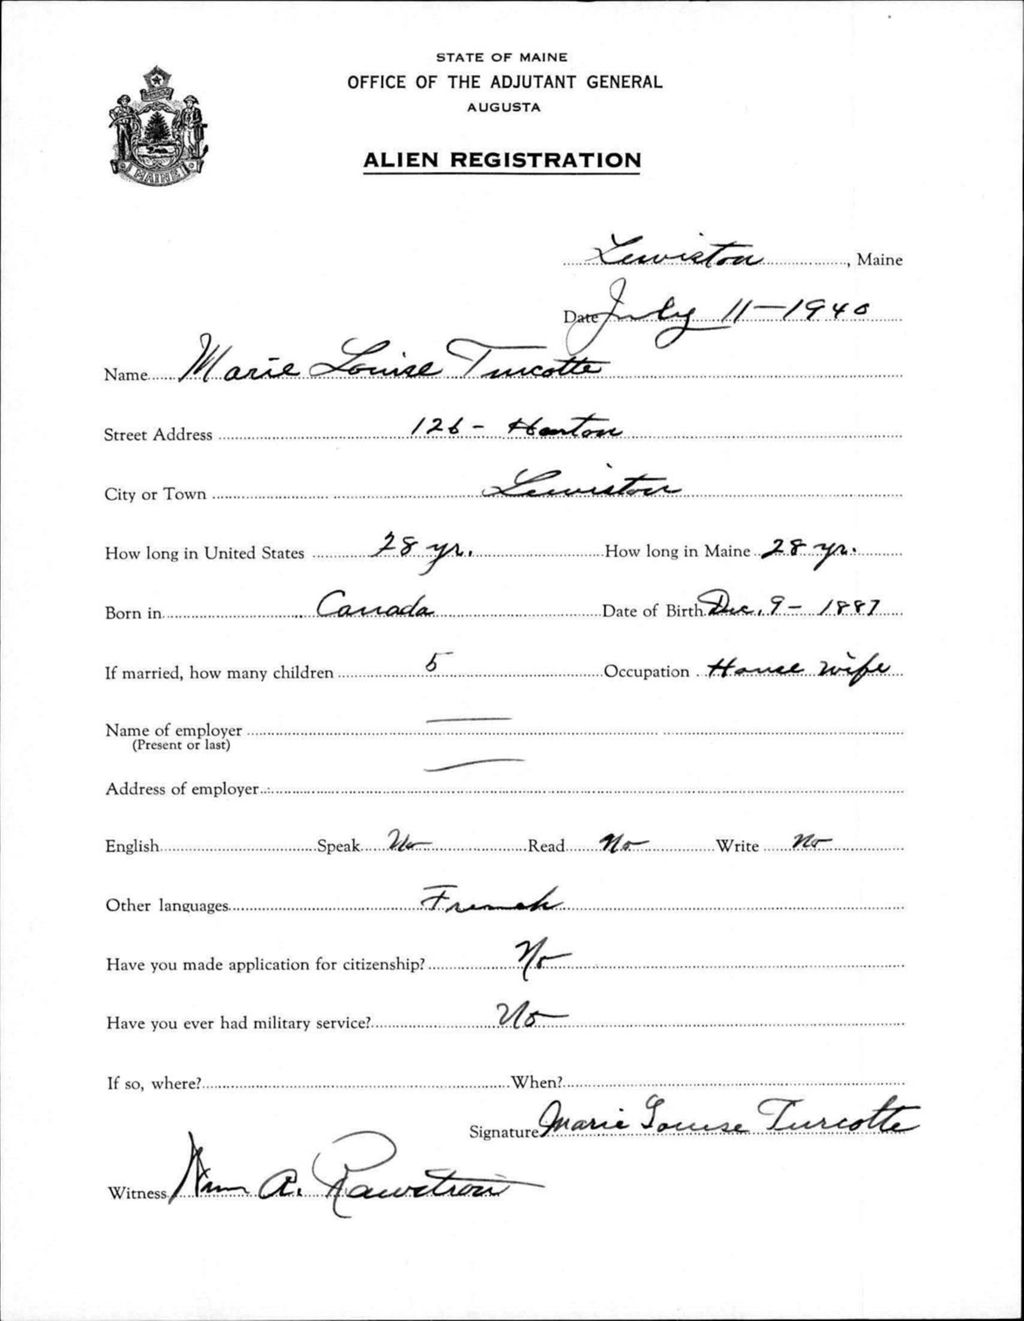 STATE OF MAINE
OFFICE OF THE ADJUTANT GENERAL
AUGUSTA
ALIEN REGISTRATION
MAINE
Lewiston, Maine
Date July 11-1940
Name Marie Louise Turcotte
Street Address 126 - Horton
City or Town Lewiston
How long in United States 28 yr. How long in Maine 28 yr.
Born in Canada Date of Birth Dec. 9 - 1887
If married, how many children 5 Occupation House wife
Name of employer
(Present or last)
Address of employer
English Speak No Read No Write No
Other languages French
Have you made application for citizenship? No
Have you ever had military service? No
If so, where? When?
Signature Marie Louise Turcotte
Witness Wm R. Rawstron